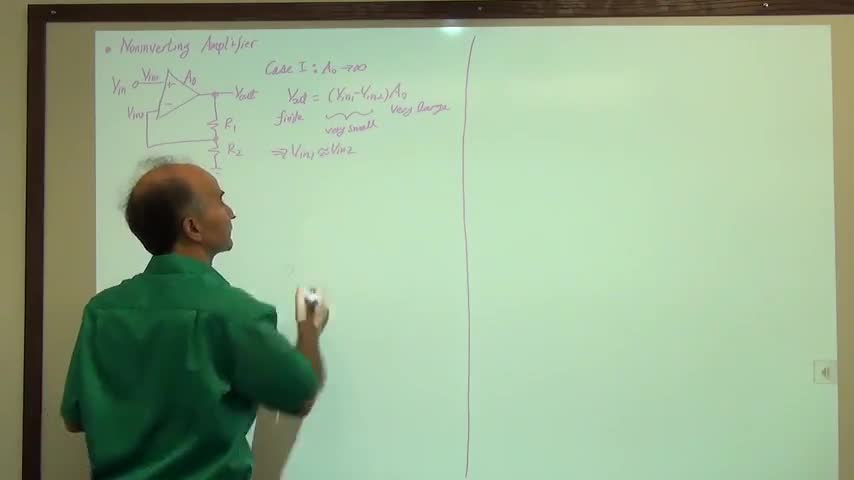 • Noninverting Amplifier
Vin Vin1 + A0 Vout
Vin2 −
R1
R2
Case I : A0 → ∞
Vout = (Vin1 − Vin2) A0
finite very small very large
⇒ Vin1 ≈ Vin2